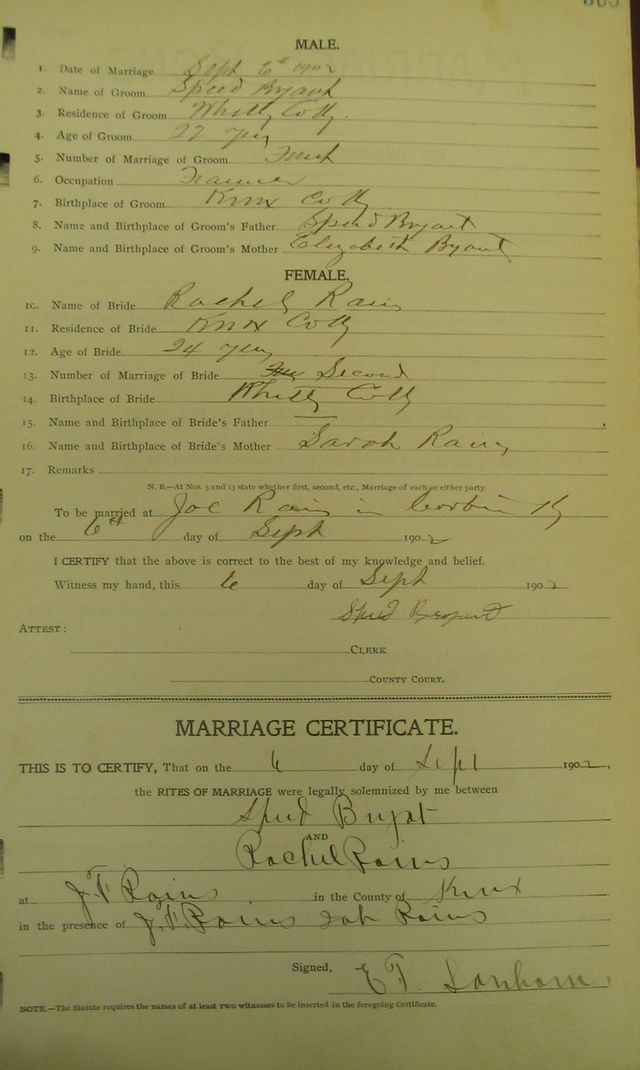 MALE.
1. Date of Marriage Sept 6th 1902
2. Name of Groom Speed Bryant
3. Residence of Groom Whitly Co Ky.
4. Age of Groom 27 yrs
5. Number of Marriage of Groom First
6. Occupation Farmer
7. Birthplace of Groom Knox Co Ky
8. Name and Birthplace of Groom's Father Speed Bryant
9. Name and Birthplace of Groom's Mother Elizabeth Bryant
FEMALE.
10. Name of Bride Rachel Rains
11. Residence of Bride Knox Co Ky
12. Age of Bride 24 yrs
13. Number of Marriage of Bride Second
14. Birthplace of Bride Whitly Co Ky
15. Name and Birthplace of Bride's Father
16. Name and Birthplace of Bride's Mother Sarah Rains
17. Remarks
N. B.—At Nos. 5 and 13 state whether first, second, etc., Marriage of each or either party.
To be married at Joe Rains in Corbin Ky
on the 6th day of Sept 1902
I CERTIFY that the above is correct to the best of my knowledge and belief.
Witness my hand, this 6 day of Sept 1902
Speed Bryant
ATTEST:
CLERK
COUNTY COURT.
MARRIAGE CERTIFICATE.
THIS IS TO CERTIFY, That on the 6 day of Sept 1902,
the RITES OF MARRIAGE were legally solemnized by me between
Speed Bryat
AND
Rachel Rains
at J. F Rains in the County of Knox
in the presence of J. F. Rains Rains
Signed, E T.
NOTE.—The Statute requires the names of at least two witnesses to be inserted in the foregoing Certificate.